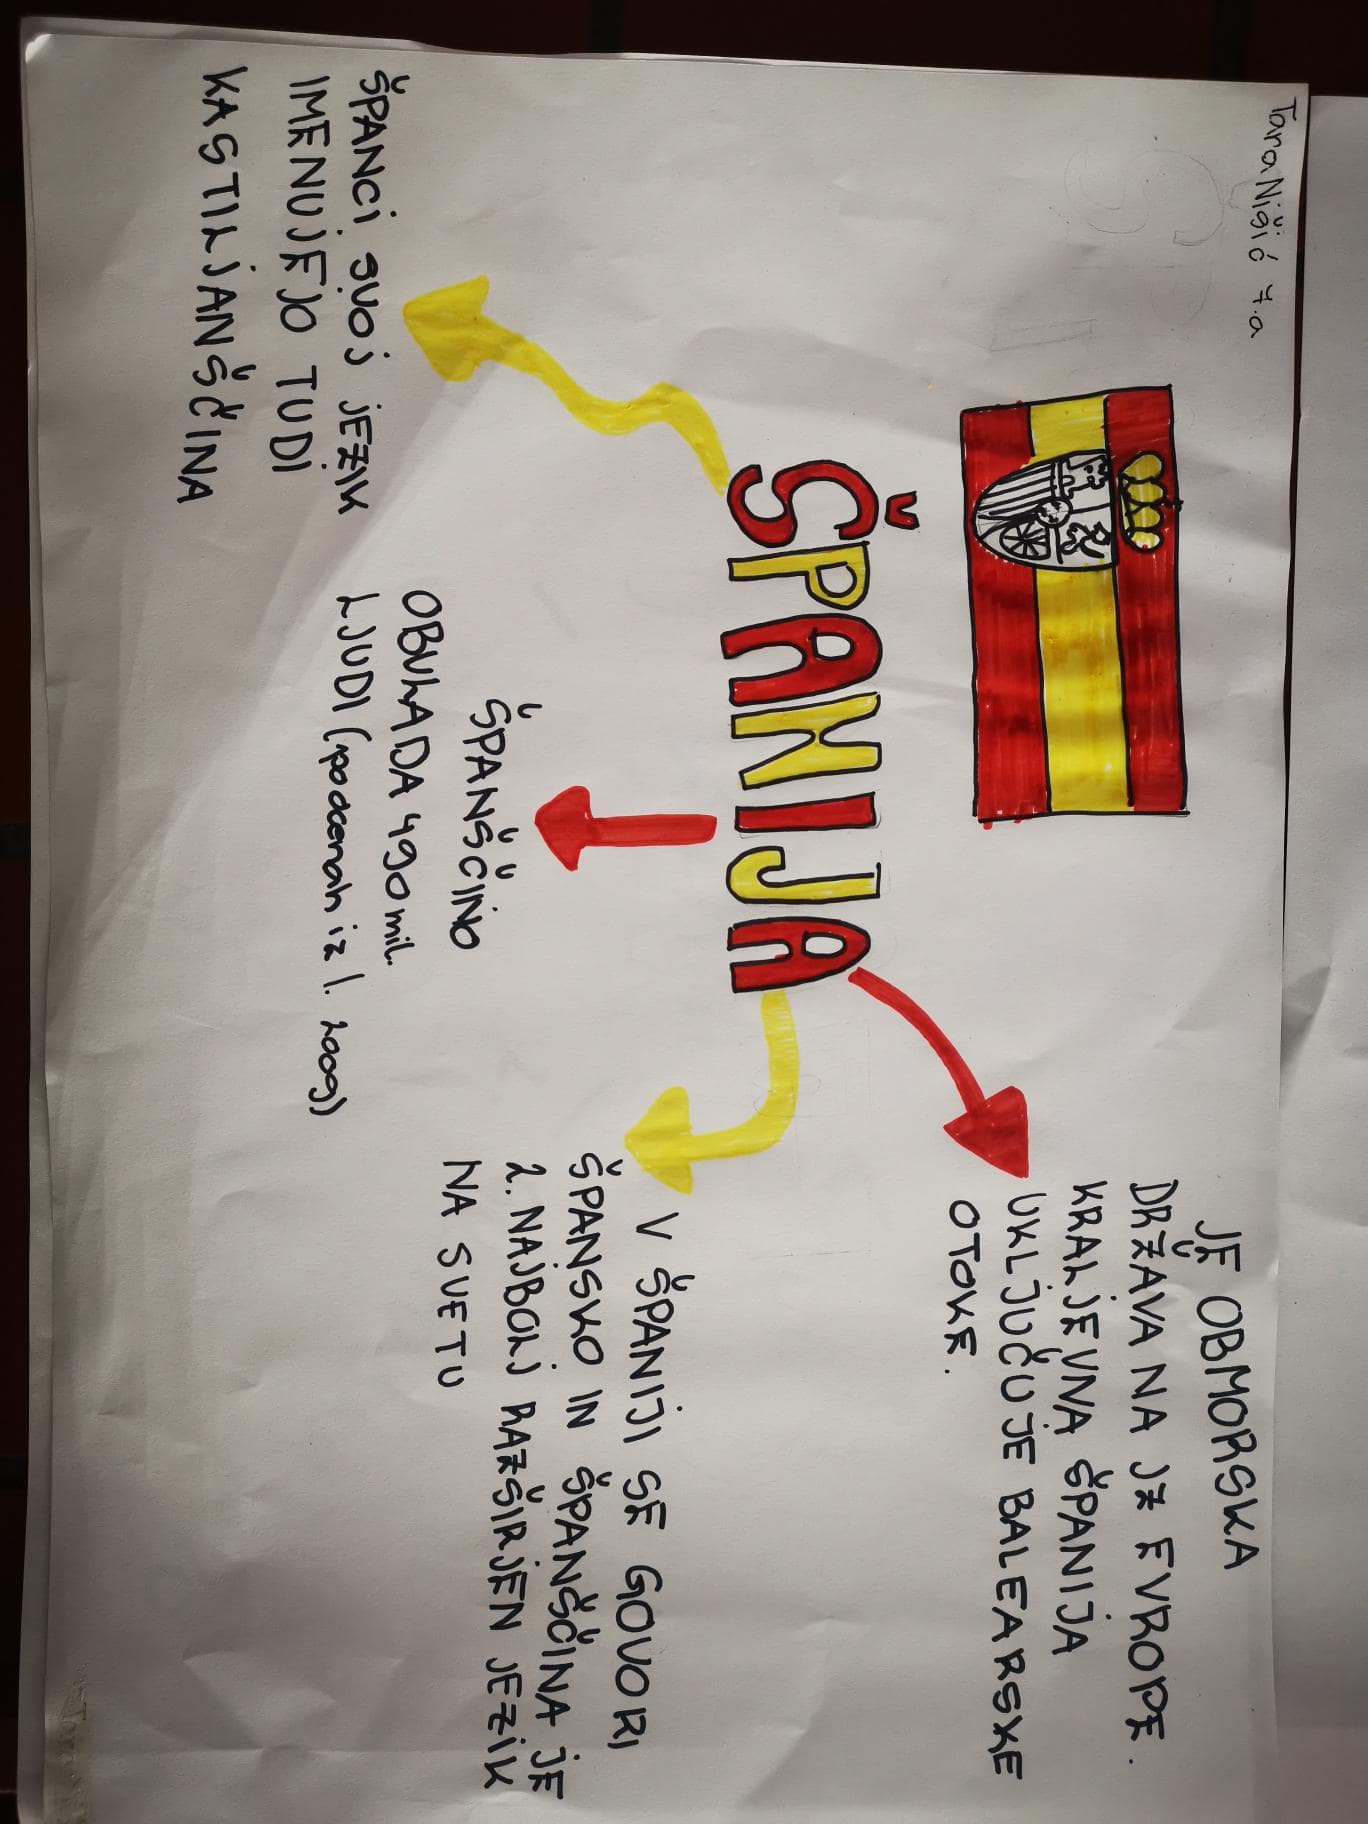 Tara Nišić 7.a
ŠPANIJA
JE OBMORSKA
DRŽAVA NA JZ EVROPE.
KRALJEVNA ŠPANIJA
VKLJUČUJE BALEARSKE
OTOKE.
V ŠPANIJI SE GOVORI
ŠPANSKO IN ŠPANŠČINA JE
2. NAJBOLJ RAZŠIRJEN JEZIK
NA SVETU
ŠPANŠČINO
OBVLADA 490 mil.
LJUDI (po ocenah iz l. 2009)
ŠPANCI SVOJ JEZIK
IMENUJEJO TUDI
KASTILJANŠČINA